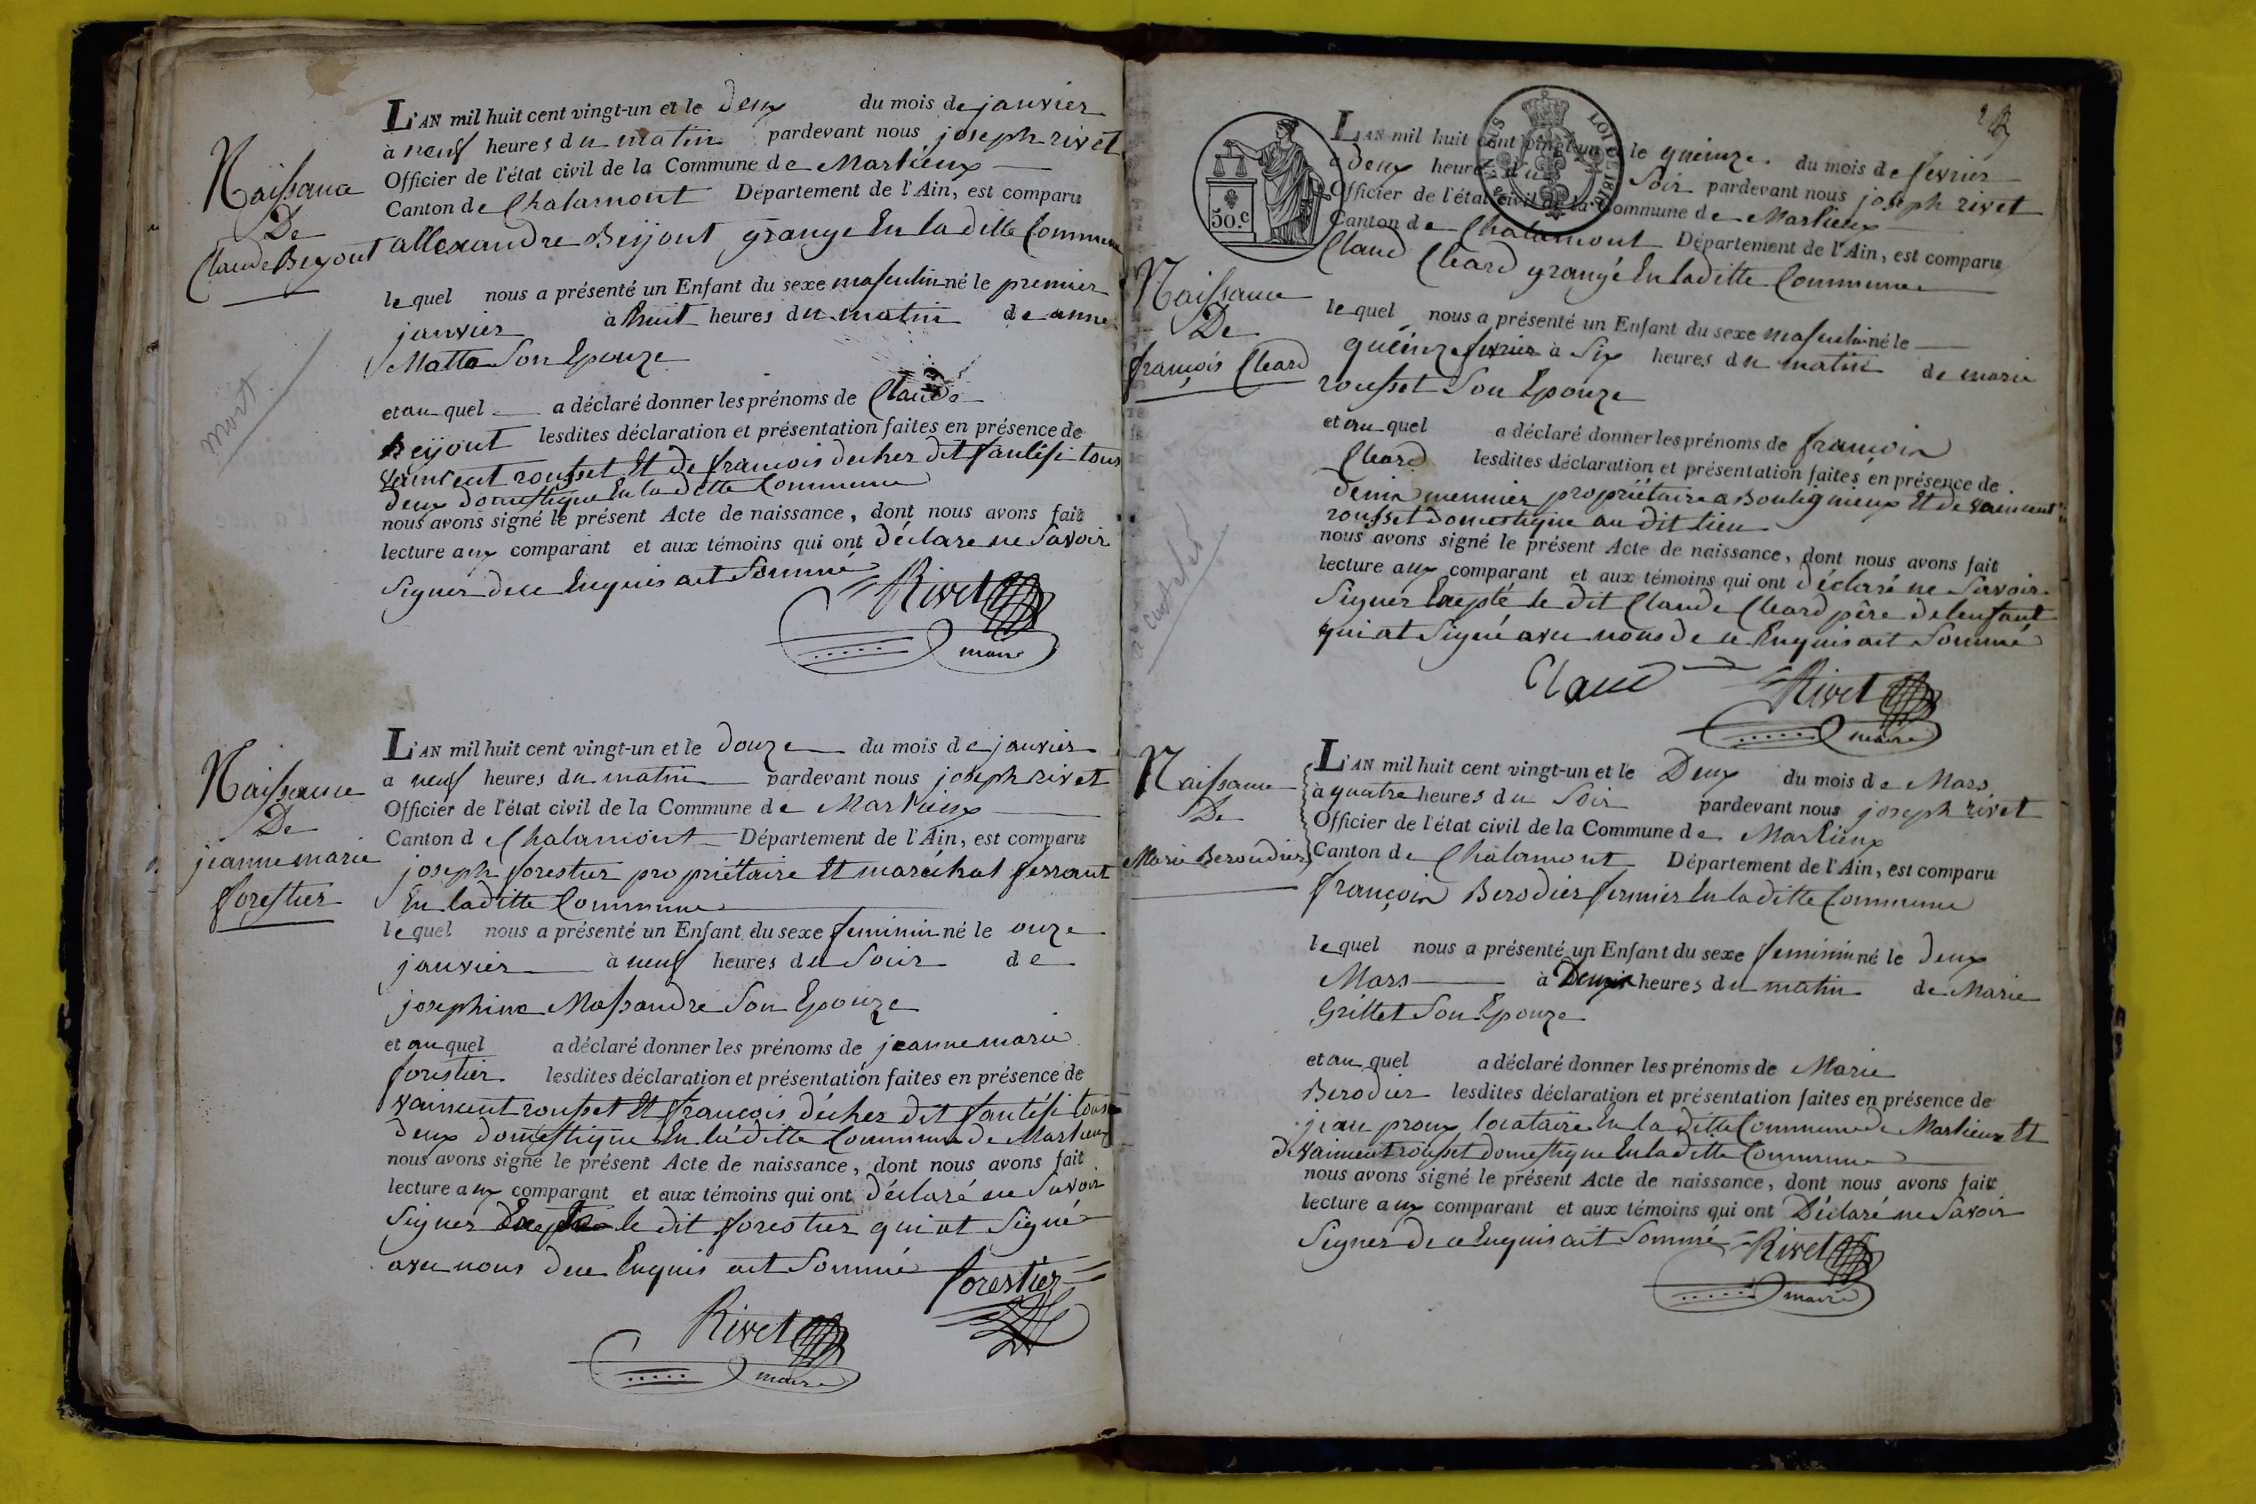 Naissance
De
Claude Beyout
mort
L'AN mil huit cent vingt-un et le deux du mois de janvier
à neuf heures du matin pardevant nous joseph rivet
Officier de l'état civil de la Commune de Marlieux
Canton de Chalamont Département de l'Ain, est comparu
allexandre Beyout grange En la ditte Commune
lequel nous a présenté un Enfant du sexe masculin né le premier
janvier à huit heures du matin de anne
Matta Son Epouze
et au quel a déclaré donner les prénoms de Claude
Beyout lesdites déclaration et présentation faites en présence de
vaincent rousset Et de francois decher dit tous
deux domestique En la ditte Commune
nous avons signé le présent Acte de naissance, dont nous avons fait
lecture aux comparant et aux témoins qui ont déclare ne Savoir
Signer de ce Enquis aet Sommé
Rivet
maire
Naissance
De
jeanne marie
forestier
L'AN mil huit cent vingt-un et le douze du mois de janvier
a neuf heures du matin pardevant nous joseph rivet
Officier de l'état civil de la Commune de Marlieux
Canton de Chalamont Département de l'Ain, est comparu
joseph forestier propriétaire Et maréchal ferrant
En laditte Commune
lequel nous a présenté un Enfant du sexe feminin né le onze
janvier à neuf heures du Soir de
josephine Massandre Son Epouze
et au quel a déclaré donner les prénoms de jeanne marie
forestier lesdites déclaration et présentation faites en présence de
vaincent rousset Et françois décher dit tous
deux domestique En la ditte Commune de Marlieux
nous avons signé le présent Acte de naissance, dont nous avons fait
lecture aux comparant et aux témoins qui ont déclaré ne Savoir
Signer le dit forestier qui at Signé
avec nous de ce Enquis aet Sommé
forestier
Rivet
maire
50.c
LOI DE 1816
Naissance
De
françois Cleard
L'AN mil huit cent vingt-un et le queinze du mois de fevrier
a deux heures du Soir pardevant nous joseph rivet
Officier de l'état civil de la Commune de Marlieux
Canton de Chalamont Département de l'Ain, est comparu
Claud Cleard grangé En laditte Commune
lequel nous a présenté un Enfant du sexe masculin né le
queinze fevrier à Six heures du matin de marie
rousset Son Epouze
et au quel a déclaré donner les prénoms de françois
Cleard lesdites déclaration et présentation faites en présence de
denis meunier propriétaire a Bouligneux Et de vaincent
rousset domestique au dit lieu
nous avons signé le présent Acte de naissance, dont nous avons fait
lecture aux comparant et aux témoins qui ont déclaré ne Savoir
Signer Exepté le dit Claude Cleard père de lenfant
qui at Signé avec nous de ce Enquis aet Sommé
Claud
Rivet
maire
Naissance
De
Marie Beroudier
L'AN mil huit cent vingt-un et le Deux du mois de Mars
à quatre heures du Soir pardevant nous joseph rivet
Officier de l'état civil de la Commune de Marlieux
Canton de Chalamont Département de l'Ain, est comparu
françois Berodier fermier En la ditte Commune
lequel nous a présenté un Enfant du sexe feminin né le deux
Mars à heures du matin de Marie
Grillet Son Epouze
et au quel a déclaré donner les prénoms de Marie
Berodier lesdites déclaration et présentation faites en présence de
jean proux locataire En la ditte Commune de Marlieux Et
de vaincent rousset domestique En la ditte Commune
nous avons signé le présent Acte de naissance, dont nous avons fait
lecture aux comparant et aux témoins qui ont Déclaré ne Savoir
Signer de ce Enquis aet Sommé
Rivet
maire